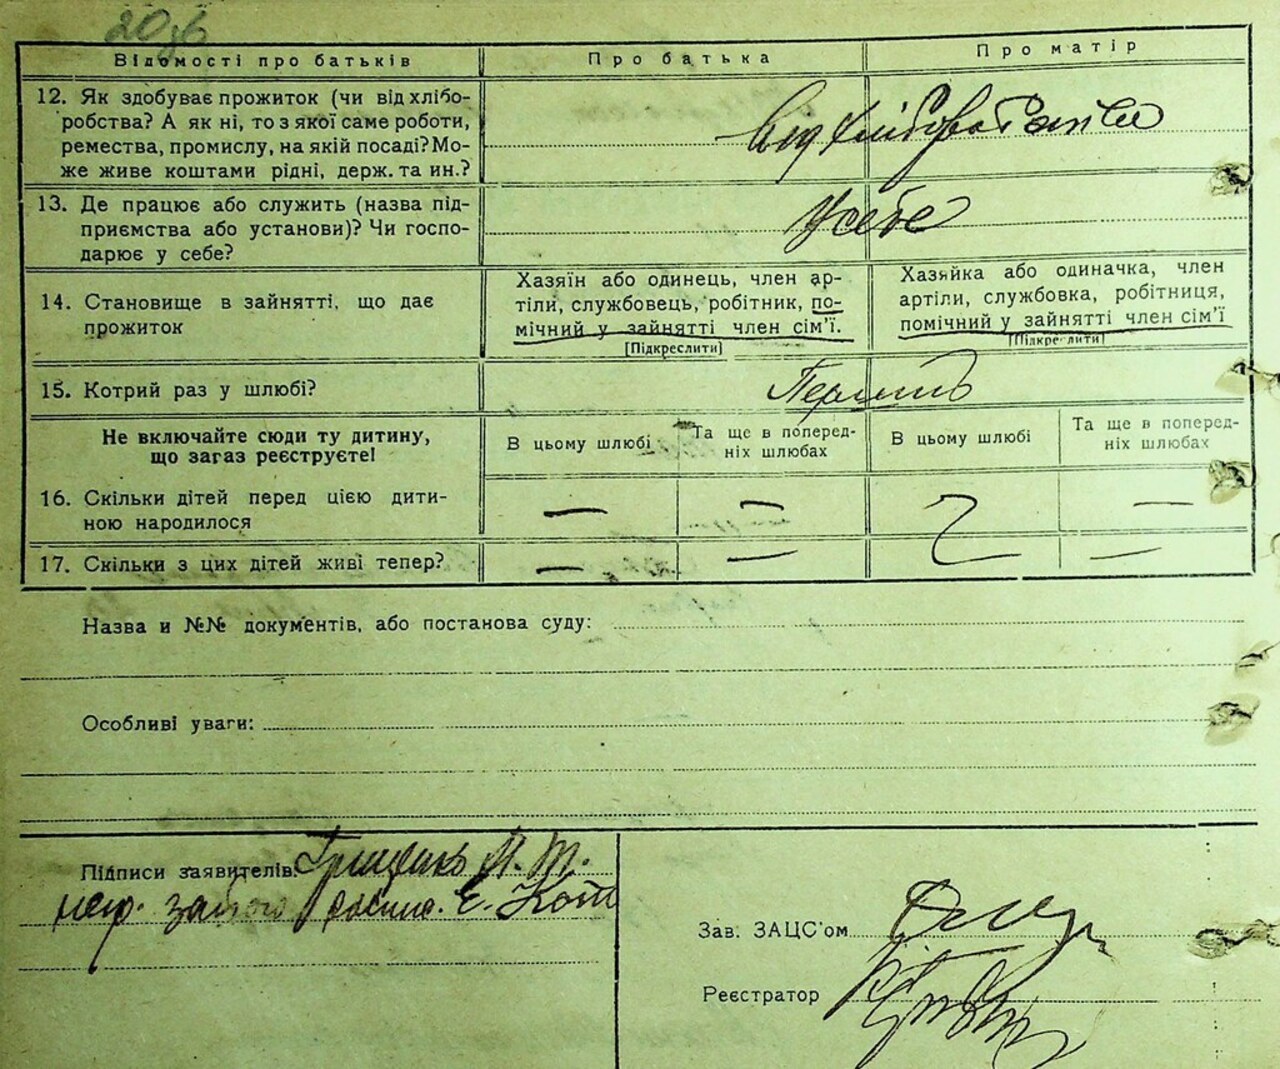 Відомості про батьків Про батька Про матір
12. Як здобуває прожиток (чи від хлібо-
робства? А як ні, то з якої саме роботи,
ремества, промислу, на якій посаді? Мо-
же живе коштами рідні, держ. та ин.?
від хліборобства
13. Де працює або служить (назва під-
приємства або установи)? Чи госпо-
дарює у себе?
У себе
14. Становище в зайнятті, що дає
прожиток
Хазяїн або одинець, член ар-
тіли, службовець, робітник, по-
мічний у зайнятті член сім’ї.
[Підкреслити]
Хазяйка або одиначка, член
артіли, службовка, робітниця,
помічний у зайнятті член сім’ї
[Підкреслити]
15. Котрий раз у шлюбі?
Не включайте сюди ту дитину,
що загаз реєструєте!
В цьому шлюбі
Та ще в поперед-
ніх шлюбах
В цьому шлюбі
Та ще в поперед-
ніх шлюбах
16. Скільки дітей перед цією дити-
ною народилося
— — 2 —
17. Скільки з цих дітей живі тепер?
— — —
Назва и №№ документів, або постанова суду:
Особливі уваги:
Підписи заявителів:
Зав. ЗАЦС’ом
Реєстратор